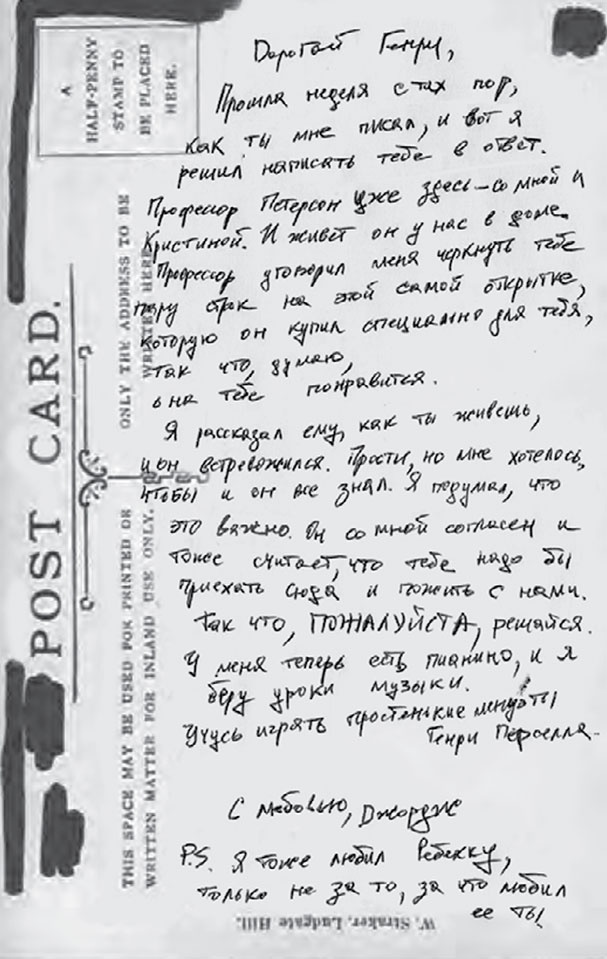 A
HALF-PENNY
STAMP TO
BE PLACED
HERE.
POST CARD.
ONLY THE ADDRESS TO BE
WRITTEN HERE
THIS SPACE MAY BE USED FOR PRINTED OR
WRITTEN MATTER FOR INLAND USE ONLY.
Дорогой Генри,
Прошла неделя с тех пор,
как ты мне писал, и вот я
решил написать тебе в ответ.
Профессор Петерсон уже здесь – со мной и
Кристиной. И живет он у нас в доме.
Профессор уговорил меня черкнуть тебе
пару строк на этой самой открытке,
которую он купил специально для тебя,
так что, думаю,
она тебе понравится.
Я рассказал ему, как ты живешь,
и он встревожился. Прости, но мне хотелось,
чтобы и он все знал. Я подумал, что
это важно. Он со мной согласен и
тоже считает, что тебе надо бы
приехать сюда и пожить с нами.
Так что, ПОЖАЛУЙСТА, решайся.
У меня теперь есть пианино, и я
беру уроки музыки.
Учусь играть простенькие менуэты
Генри Перселла.
С любовью, Джордж
P.S. Я тоже любил Ребекку,
только не за то, за что любил
ее ты
W. Straker, Ludgate Hill.